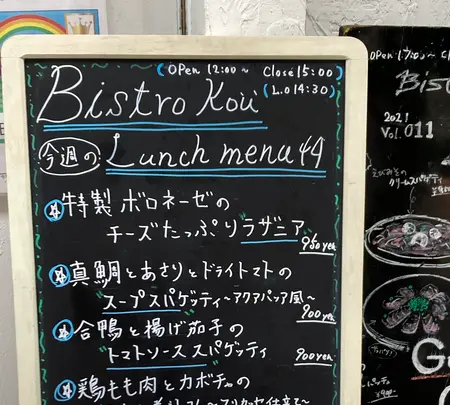 (OPen 12:00~ Close 15:00)
(L.o 14:30)
Bistro Kou
今週の Lunch menu
特製 ボロネーゼの
チーズたっぷり"ラザニア"
980yen
真鯛とあさりとドライトマトの
"スープスパゲッティ~アクアパッア風~
900yen
合鴨と揚げ茄子の
"トマトソーススパゲッティ
900yen
鶏もも肉とカボチャの
OPen 17:00~
Bis
2021
Vol.011
クリームスパゲティ